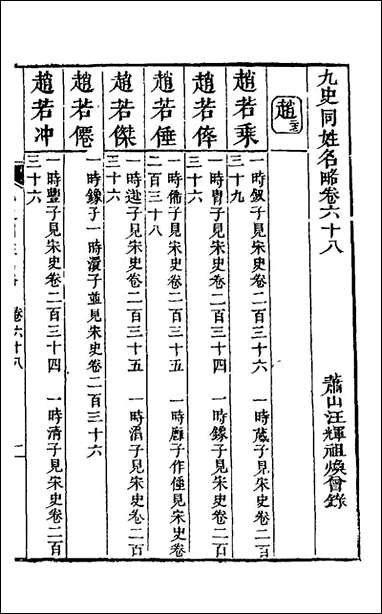 九史同姓名略卷六十八
蕭山汪輝祖煥曾錄
趙
趙若乘
一時釼子見宋史卷二百三十六　一時葴子見宋史卷二百
三十九
趙若侔
一時胄子見宋史卷二百三十四　一時鎵子見宋史卷二百
三十六
趙若倕
一時儔子見宋史卷二百三十五　一時廱子作倕見宋史卷
二百三十八
趙若傑
一時迦子見宋史卷二百三十五　一時滔子見宋史卷二百
三十六
趙若僊
一時鎵子一時瀆子並見宋史卷二百三十六
趙若冲
一時豐子見宋史卷二百三十四　一時清子見宋史卷二百
三十六
卷六十八
一